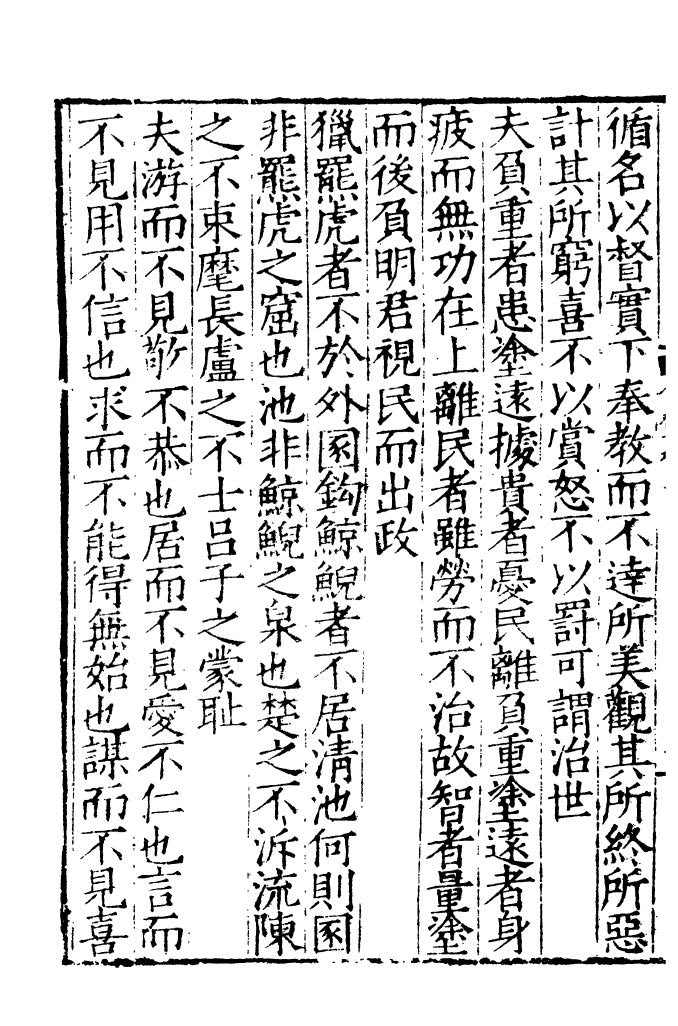 循名以督實下奉教而不達所美觀其所終所惡
計其所窮喜不以賞怒不以罰可謂治世
夫負重者患塗遠據貴者憂民離負重塗遠者身
疲而無功在上離民者雖勞而不治故智者量塗
而後負明君視民而出政
獵羆虎者不於外圂鈎鯨鯢者不居清池何則圂
非羆虎之窟也池非鯨鯢之泉也楚之不泝流陳
之不束麾長盧之不士呂子之蒙耻
夫游而不見敬不恭也居而不見愛不仁也言而
不見用不信也求而不能得無始也謀而不見喜